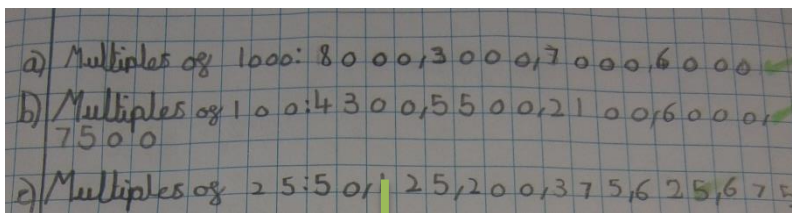 a) Multiples of 1000: 8000, 3000, 7000, 6000
b) Multiples of 100: 4300, 5500, 2100, 6000,
7500
c) Multiples of 25: 50, 125, 200, 375, 625, 675